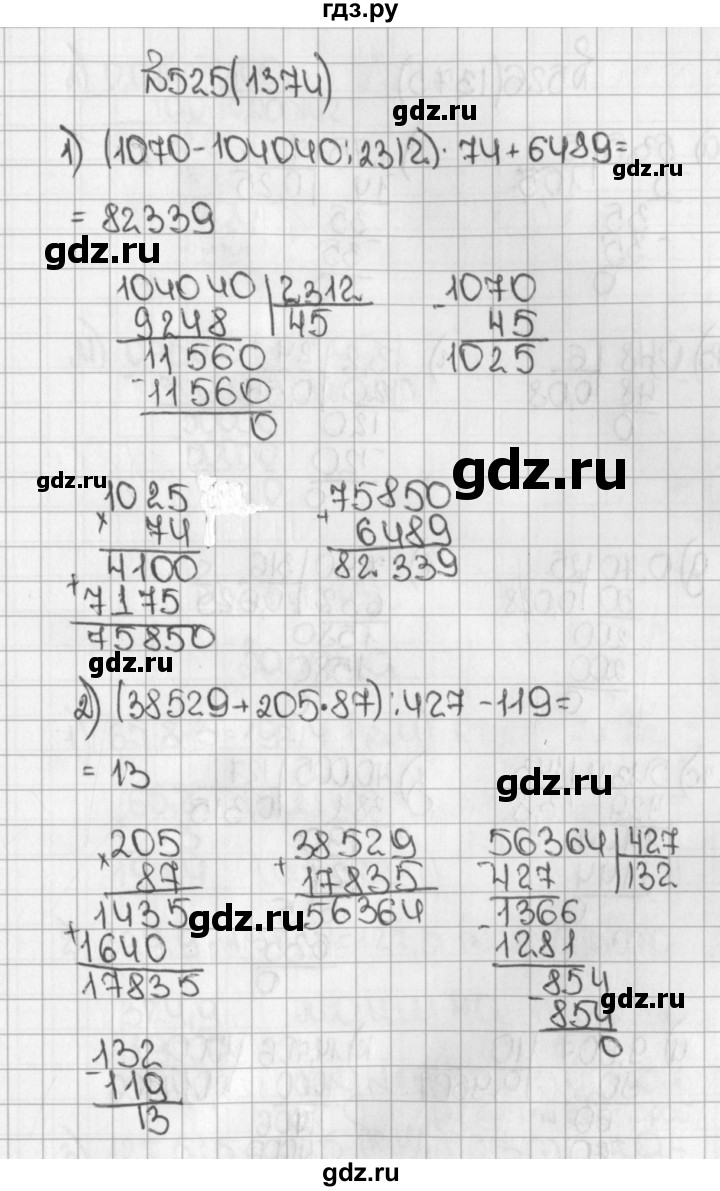 гдз.ру
№525(1374)
gdz.ru
1) (1070-104040:2312)·74+6489=
gdz.ru
= 82339
gdz.ru
104040 2312
9248 45
11560
-11560
0
1070
- 45
1025
gdz.ru
gdz.ru
1025
× 74
4100
+7175
75850
75850
+ 6489
82339
gdz.ru
2) (38529+205·87):427-119=
= 13
gdz.ru
205
× 87
1435
+1640
17835
gdz.ru
38529
+17835
56364
56364 427
-427 132
1366
-1281
854
-854
0
gdz.ru
132
-119
13
gdz.ru